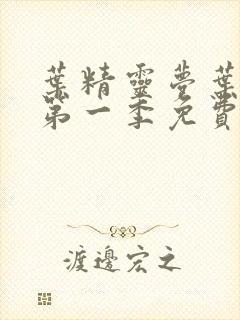 葉精靈夢葉
第一季免費
渡邊宏之